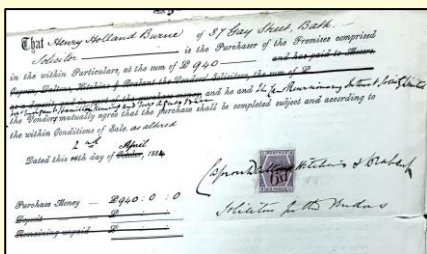 That Henry Holland Burne of 37 Gay Street, Bath.
Solicitor is the Purchaser of the Premises comprised
in the within Particulars, at the sum of £940 and has paid to Messrs.
Capron, Dalton, Hitchins & Brabant the Vendors' Solicitors, the sum of £
as a deposit and in part of the purchase money, and he and The Law Reversionary Interest Society Limited
the Vendors mutually agree that the purchase shall be completed subject and according to
the within Conditions of Sale. as altered
2nd April
Dated this day of October, 1884
Capron Dalton Hitchins & Brabant
Purchase Money — £940 : 0 : 0
Solicitors for the Vendors
Deposit — £ : :
Remaining unpaid — £ : :